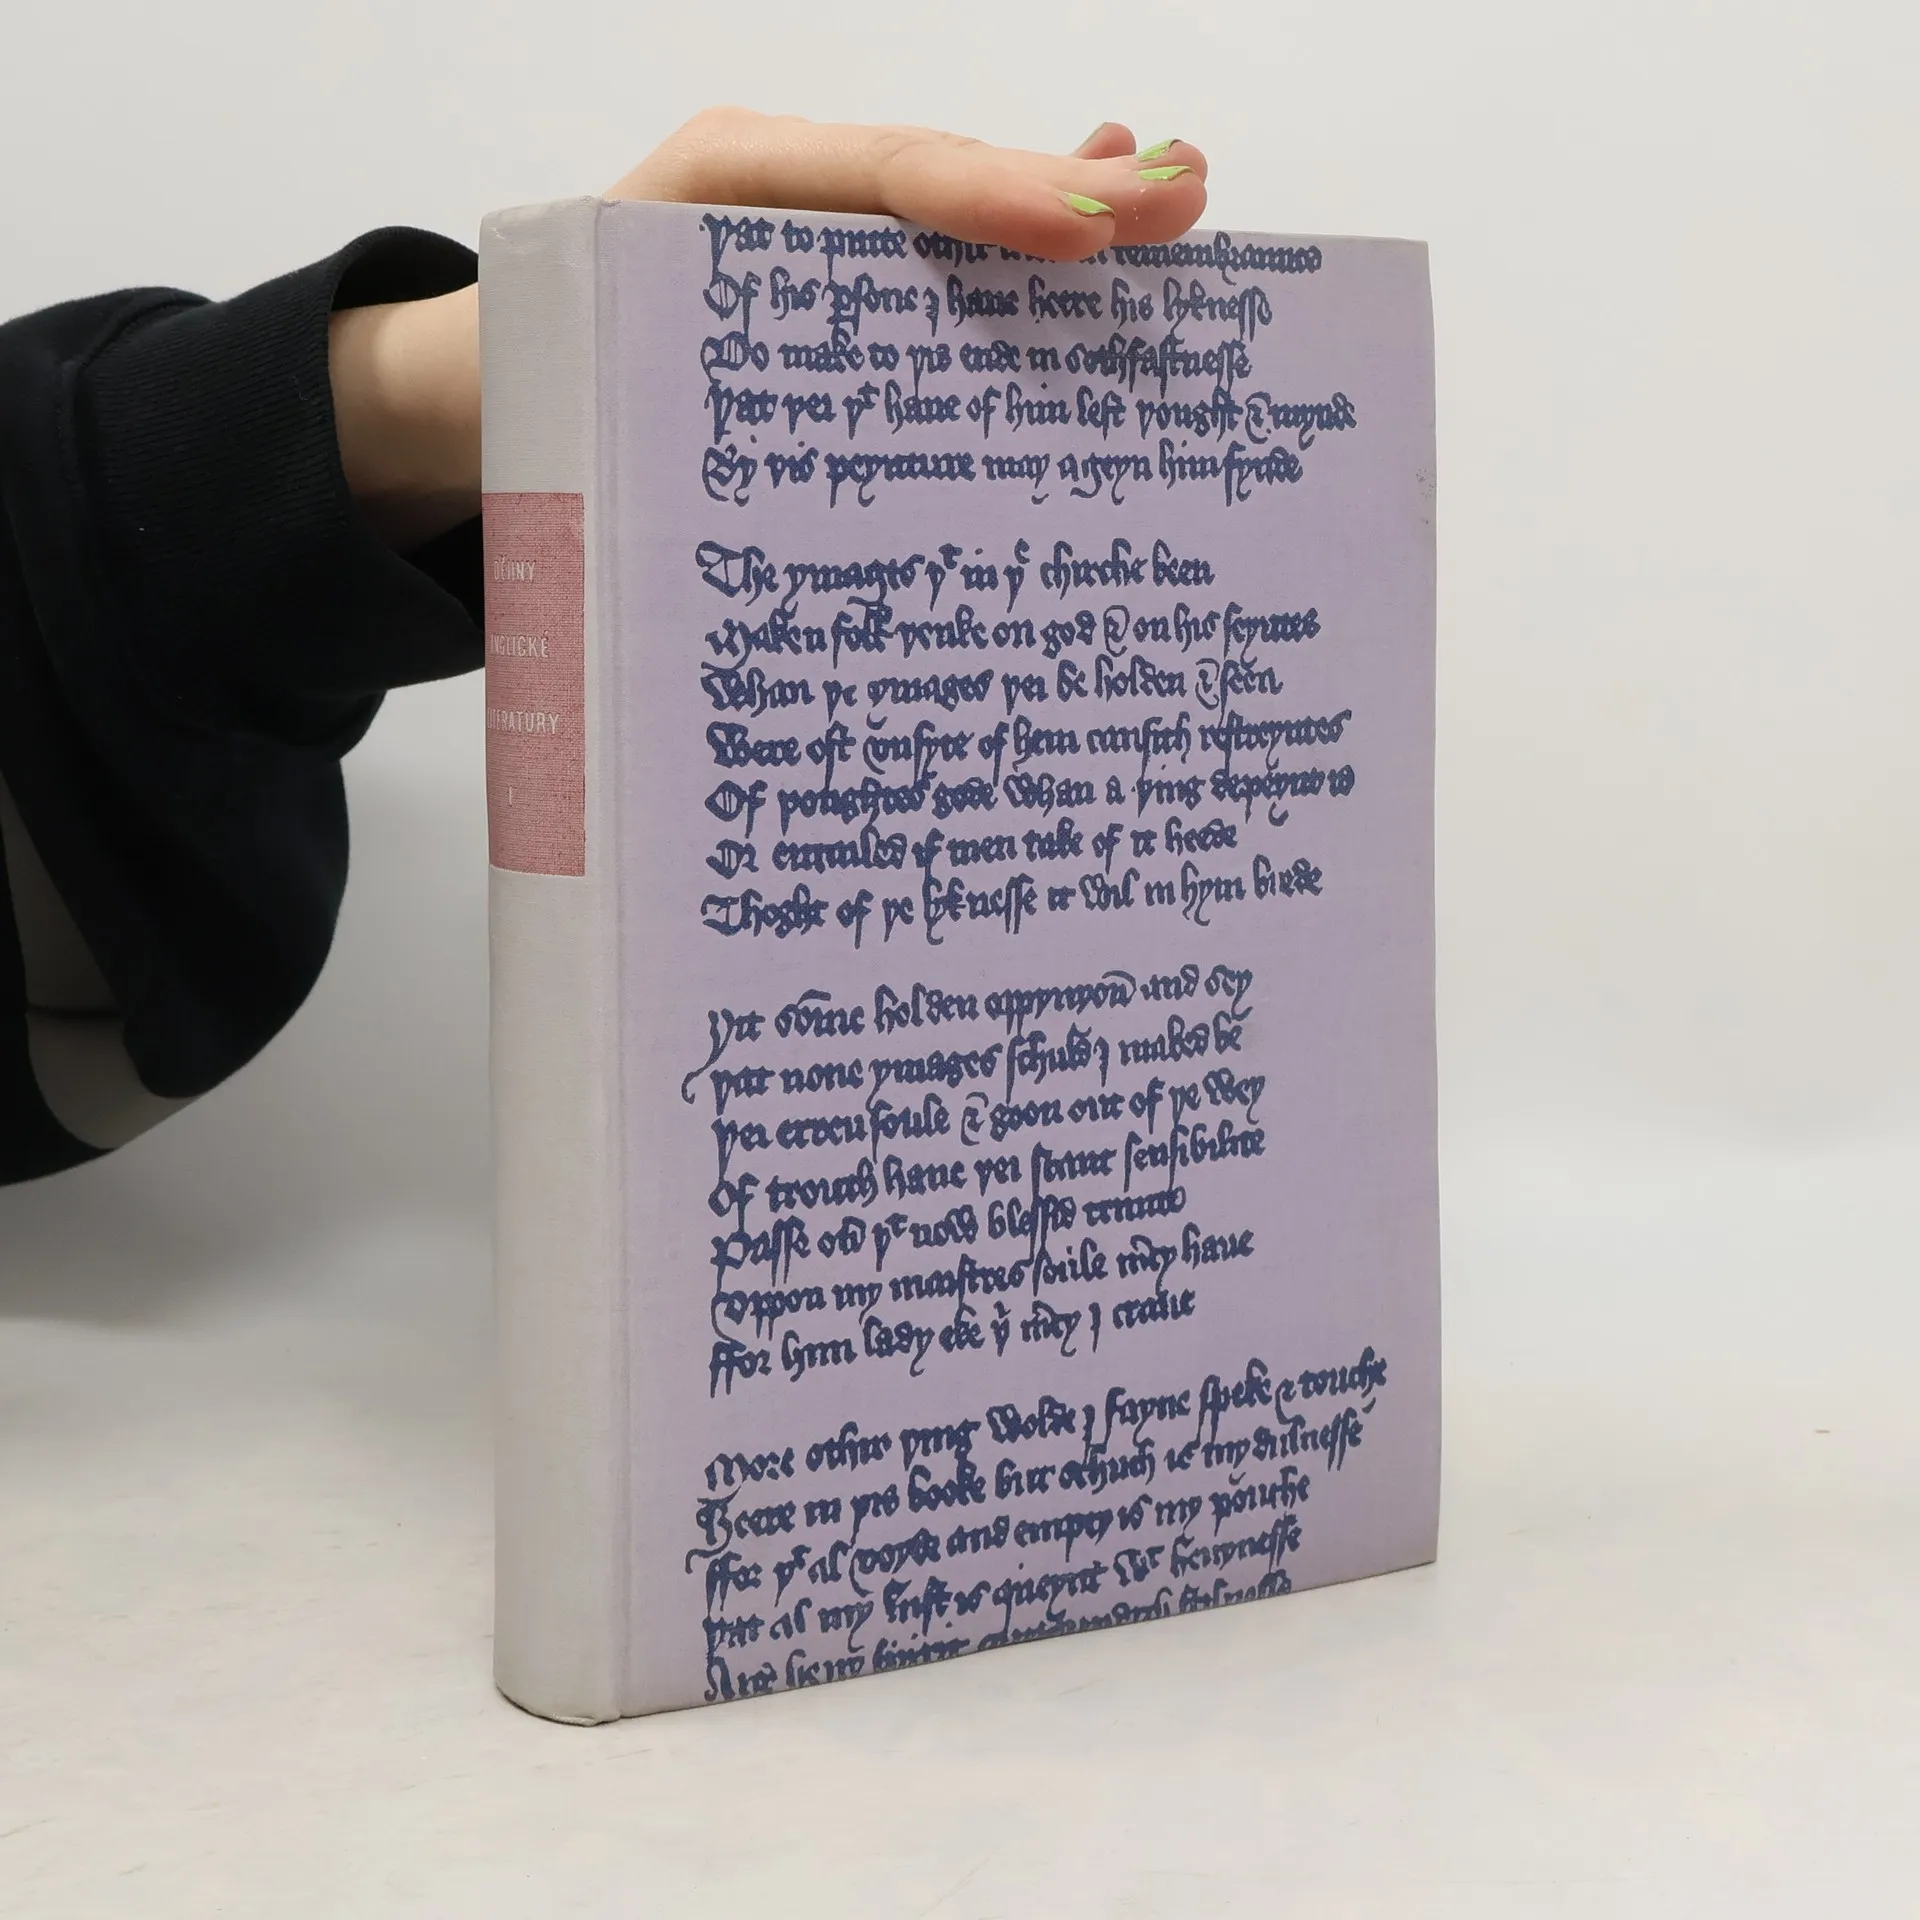 DĚJINY
ANGLICKÉ
LITERATURY
I
Þat to putte othir in remembraunce
Of his ꝑsone I haue heere his lyknesse
Do make to þis ende in sothfastnesse
Þat þei þᵗ haue of him left þought & mynde
By þis peynture may ageyn him fynde
The ymages þᵗ in þᵉ chirche been
Maken folk þenke on god & on his seyntes
Whan þe ymages þei be holden & seen
Were oft vnsyte of hem causith restreyntes
Of þoughtes gode whan a þing depeynt is
Or entailed if men take of it heede
Thoght of þe lyknesse it wil in hym brede
Yit some holden oppynyon and sey
Þat none ymages schuld I maked be
Þei erren foule & goon out of þe wey
Of trouth haue þei scant sensibilite
Passe ouer þᵗ now blessid trinite
Vppon my maistres soule mercy haue
ffor him lady eke þi mercy I craue
More othir þing wolde I fayne speke & touche
Heere in þis booke but schuch is my dulnesse
ffor þᵗ al voyde and empty is my pouche
Þat al my lust is queynt wᵗ heuynesse
And heuy spirit comaundeth stilnesse